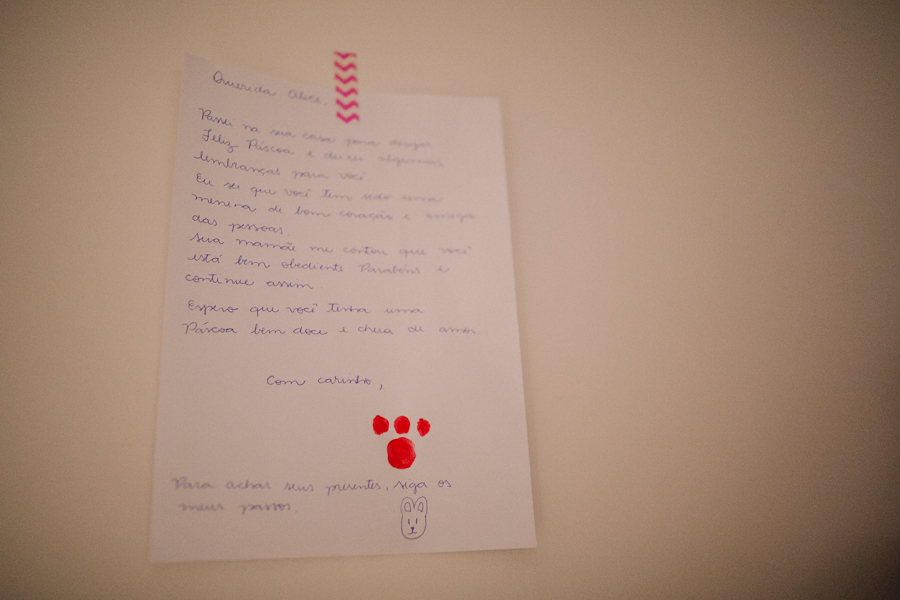 Querida Alice,
Passei na sua casa para desejar
Feliz Páscoa e deixei algumas
lembranças para você
Eu sei que você tem sido uma
menina de bom coração e amiga
das pessoas.
Sua mamãe me contou que você
está bem obediente Parabéns e
continue assim.
Espero que você tenha uma
Páscoa bem doce e cheia de amor
Com carinho,
Para achar seus presentes, siga os
meus passos.